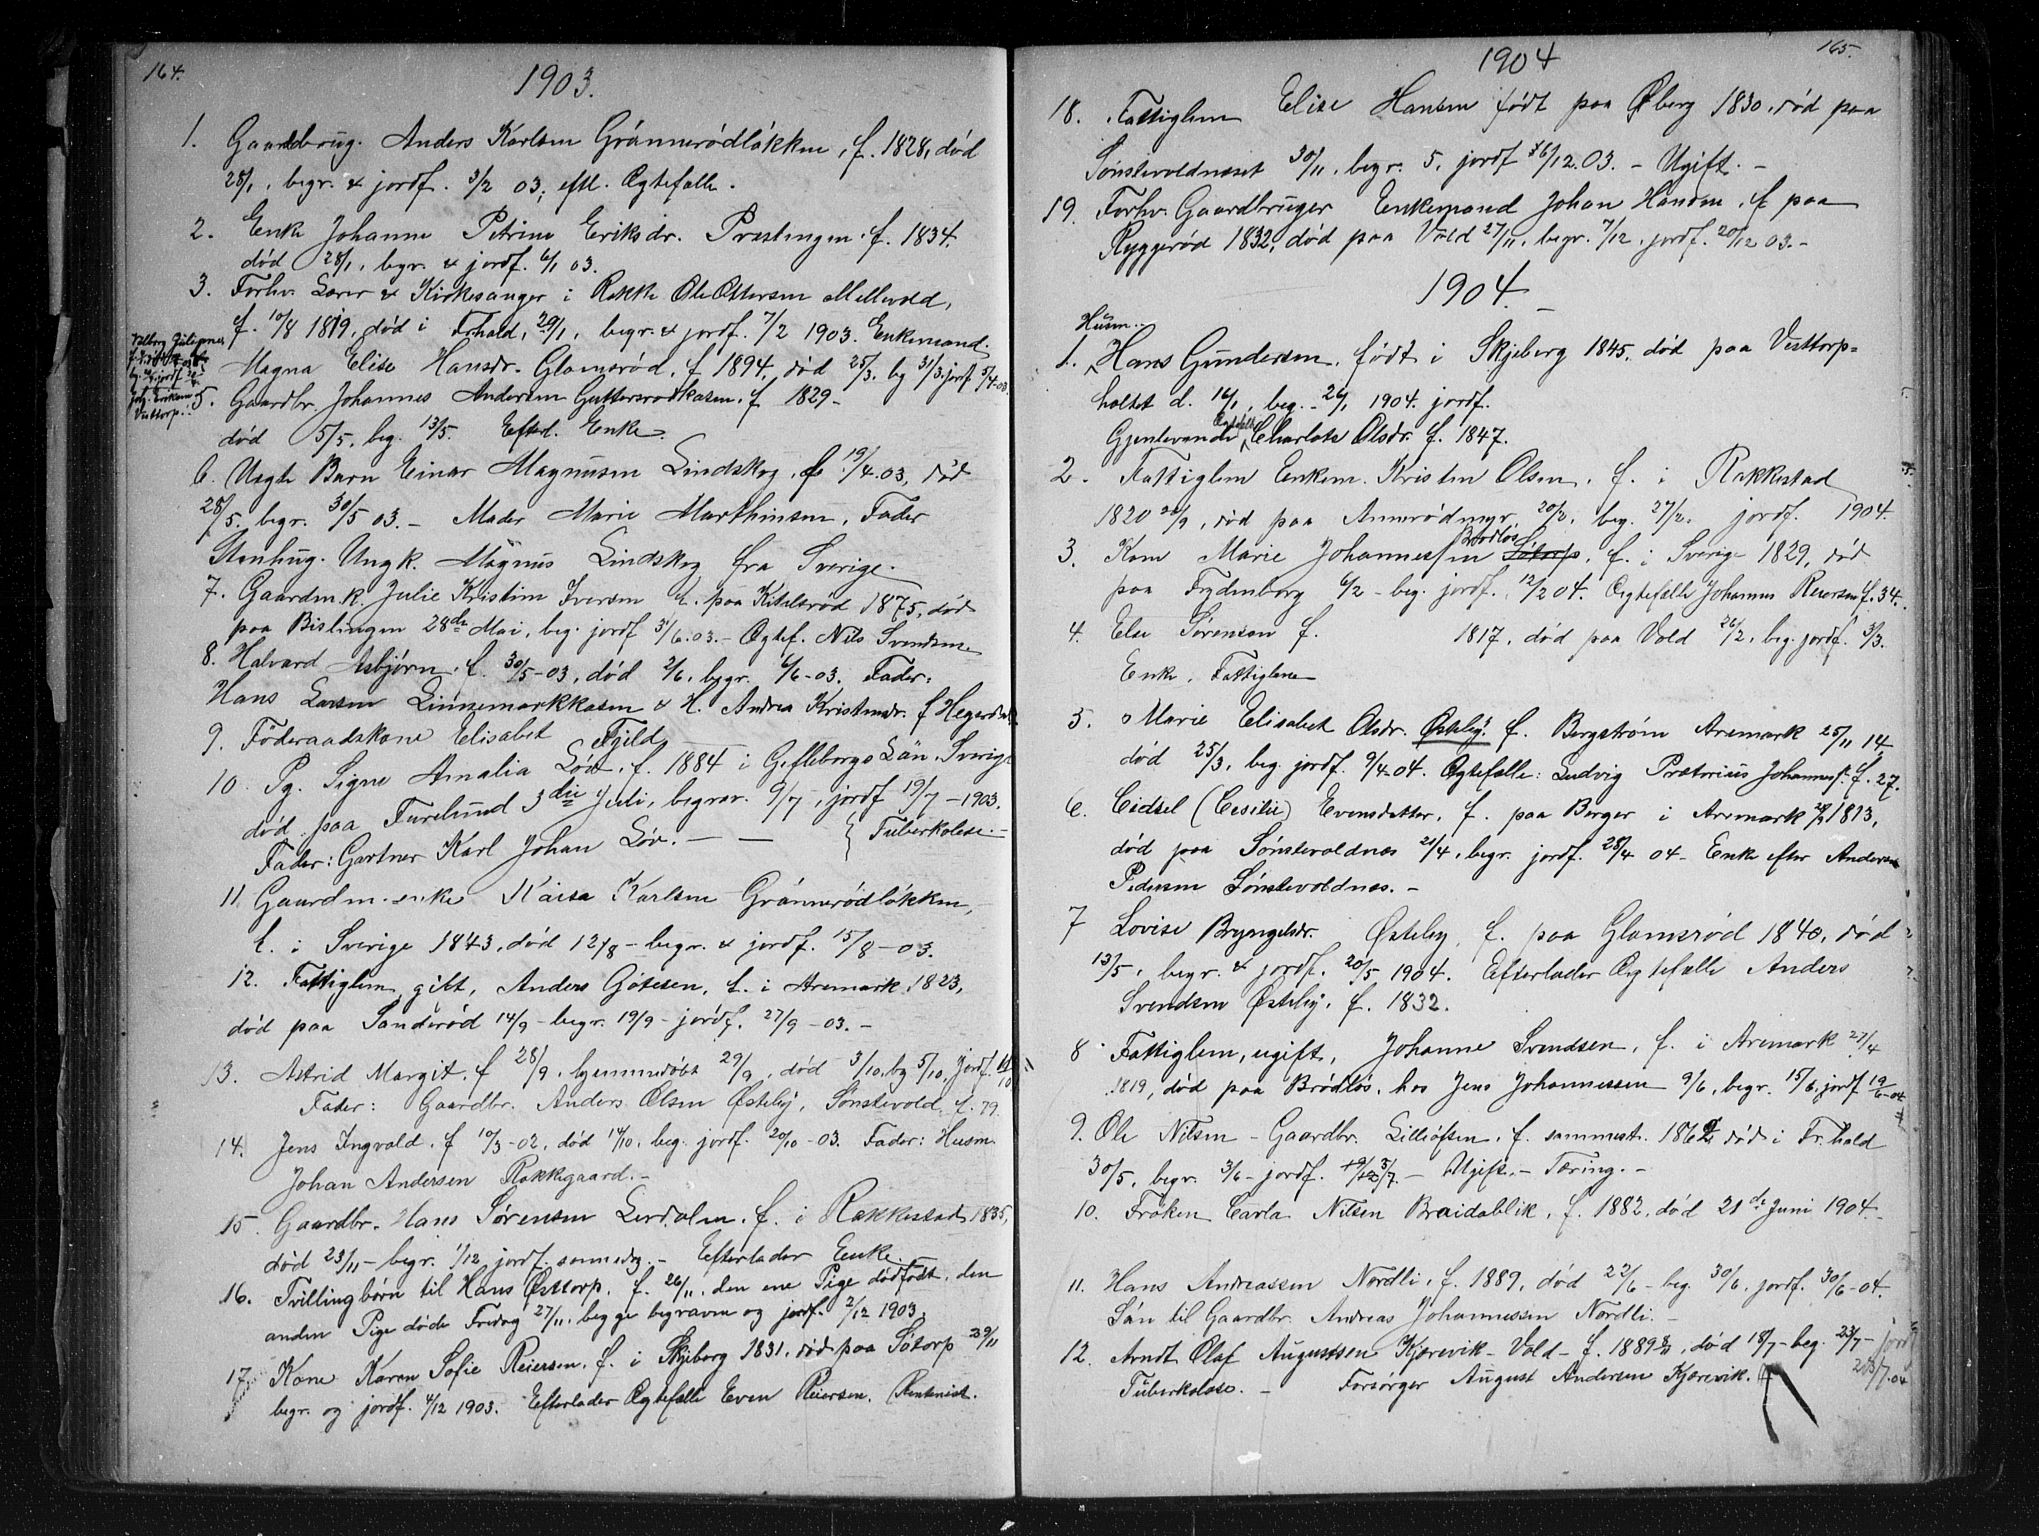 164.
1903.
1. Gaardbrug. Anders Karlsen Grønnerødløkken, f. 1828, død
28/1, begr. & jordf. 3/2 03, eftl. Ægtefælle.
2. Enke Johanne Petrine Eriksdr. Præstengen. f. 1834.
død 28/1, begr. & jordf. 6/1 03.
3. Forhv. Lærer & Kirkesanger i Rokke Ole Ottersen Mellevold,
f. 10/8 1819, død i Frhald, 29/1, begr. & jordf. 7/2 1903. Enkemand.
Magna Elise Hansdr. Glamsrød, f. 1894, død 25/3. bg 31/3. jordf 5/4-03.
Joh. Eriksen
Vesttorp.
5. Gaardbr. Johannes Andersen Guttersrødkasen, f 1829 -
død 5/5, beg. 13/5. Efterl. Enke.
6. Uægte Barn Einar Magnusen Lindskog, f 19/4.03, død
28/5, begr. 30/5 03. - Moder Marie Marthinsen, Fader
Stenhug. Ungk. Magnus Lindskog fra Sverige.
7. Gaardm.k. Julie Kristine Iversen f. paa Kitelsrød 1875, død
paa Bislingen 28de Mai, beg. jordf 3/6.03. - Ægtef. Nils Svendsen
8. Halvard Asbjørn, f. 30/5-03, død 2/6, begr. 6/6-03. Fader:
Hans Larsen Linnemarkkasen & H. Andrea Kristensdr. f
9. Föderaadskone Elisabet Fjeld
10. Pg. Signe Amalia Löv, f. 1884 i Gefleborgs Län, Sverig
død paa Furulund 3die Juli, begrav. 9/7, jordf 19/7 - 1903.
Fader: Gartner Karl Johan Löv. - - } Tuberkolose. -
11. Gaardm. enke Kaisa Karlsen Grønnerødløkken,
f. i Sverige 1843, død 12/8 - begr. & jordf. 15/8 - 03.
12. Fattiglem, gift, Anders Götesen, f. i Aremark 1823,
død paa Sanderød 14/9 - begr. 19/9 - jordf. 27/9 - 03. -
13. Astrid Margit, f 28/9, hjemmedøbt 29/9, død 3/10, bg 5/10, jordf. 11/10
Fader: Gaardbr. Anders Olsen Østeby, Sønstevold, f. 79.
14. Jens Ingvald, f 10/3-02, død 14/10, beg. jordf. 20/10 - 03. Fader: Husm.
Johan Andersen Rokkegaard. -
15. Gaardbr. Hans Sørensen Lerdalen, f. i Rakkestad 1835,
død 23/11 - begr. 1/12 jordf. sammedag. - Efterlader Enke.
16. Tvillingbørn til Hans Østtorp, f. 26/11, den ene Pige dødfødt, den
anden Pige døde Fredag 27/11, begge begravne og jordf. 2/12 1903.
17. Kone Karen Sofie Reiersen, f. i Skjeberg 1831, død paa Sötorp 29/11
begr. og jordf. 4/12 1903. Efterlader Ægtefælle Even Reiersen. Rentenist.
165.
1904
18. Fattiglem Elise Hansen født paa Øberg 1830, død paa
Sønstevoldnæset 30/11, begr. 5, jordf 6/12.03. - Ugift. -
19. Forhv. Gaardbruger Enkemand Johan Hansen, f paa
Ryggerød 1832, død paa Vold 27/11, begr. 7/12, jordf. 20/12 03. -
1904.
Husm.
1. Hans Gundersen, født i Skjeberg 1845, død paa Vesttorp-
holtet d. 16/1, beg. 26/1 1904. jordf.
Gjenlevende Ægtefælle Charlote Olsdr. f. 1847.
2. Fattiglem Enkem. Kristen Olsen, f. i Rakkestad
1820 20/9, død paa Annerødmyr, 20/2, beg. 27/2. jordf. 1904.
3. Kone Marie Johannessen Brødløs Sötorp, f. i Sverige 1829, død
paa Frydenborg 6/2 - beg. jordf. 12/2 04. Ægtefælle Johannes Reiersen f. 34.
4. Else Sørensen f. 1817, død paa Vold 26/2, beg. jordf. 3/3.
Enke, Fattiglem
5. Marie Elisabet Olsdr. Østeby. f. Bergstrøm Aremark 25/11 14,
død 25/3, beg. jordf. 9/4 04. Ægtefælle: Ludvig Prætorius Johannesf. f. 27.
6. Cidsel (Cesilie) Evensdatter, f. paa Berger i Aremark 1813,
død paa Sønstevoldnæs 21/4, begr. jordf. 28/4 04 - Enke efter Andersen
Pedersen Sønstevoldnæs. -
7 Lovise Bryngelsdr. Østeby, f. paa Glamsrød 1840, død
13/5, begr. & jordf. 20/5 1904. Efterlader Ægtefælle Anders
Svendsen Østeby, f. 1832.
8. Fattiglem, ugift, Johanne Svendsen, f. i Aremark 27/4
1819, død paa Brødløs, hos Jens Johannessen 9/6, begr. 15/6, jordf 19/6-04
9. Ole Nilsen - Gaardbr. Lilliöfsen, f. sammest. 1862 død i Fr.hald
30/5, begr. 3/6 - jordf. 3/7. - Ugift. - Tæring. -
10. Frøken Carla Nilsen Braidablik, f. 1882, død 21de Juni 1904. -
11. Hans Andreassen Nordli, f. 1889, død 22/6 - beg. 30/6, jordf. 30/6-04.
Søn til Gaardbr. Andreas Johannessen Nordli. -
12. Arndt Olaf Augustsen Kjærevik - Vold - f. 1889, død 18/7 - beg. 23/7 - jord
Tuberkolose. - Forsørger August Andersen Kjærevik. 23/7.04